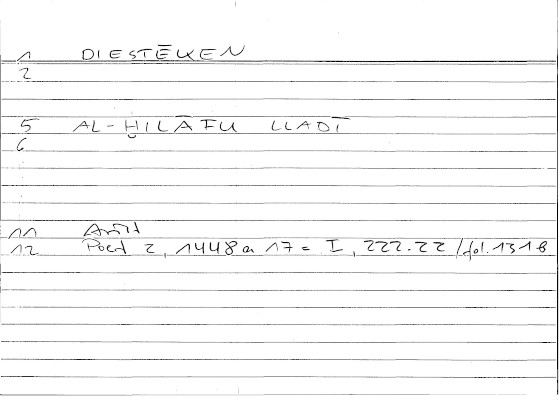 1 DIESTĒKEN
2
5 AL-ḪILĀFU LLADĪ
6
11 Arist
12 Poet 2, 1448 a 17 = I, 222.22 / fol. 131 b